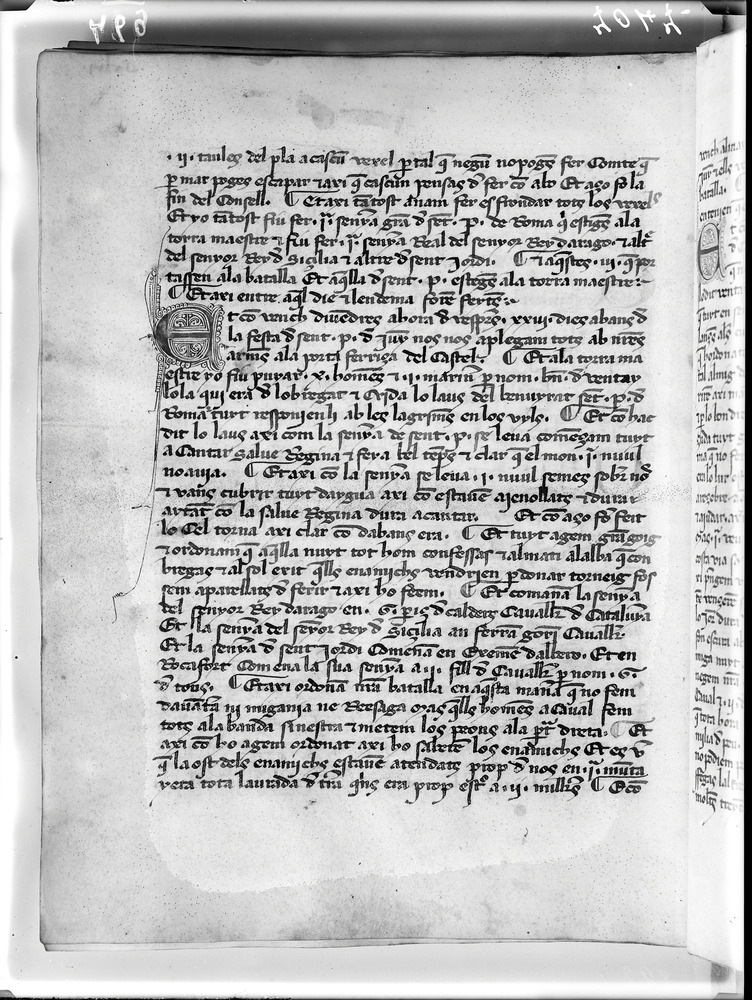 .ii. taules del pla a cascu vexel p tal q negu no pogs fer Comte q
p mar poges escapar τ axi q cascun pensas d fer co alo Et aço fo la
fin del Consell. ¶ Et axi tātost anam fer esfondar tots los vexels
Et yo tātost fiu fer .iª. senyra grā d set. p. de Roma q estigs ala
torra maestre τ fiu fer .iª. senyra Real del senyor Rey darago. τ altª
del senyor Rey d Sicilia τ altre d sent Jordi. ¶ τ aqstes .iii. q por
tassen ala batalla Et aqlla d sent. p. estegs ala torra maestre
¶ Et axi entre aql die τ lendema foren fertes
Et co vench diuēdres abora d vespres. xxiii. dies abans d
la festa d sent. p. d juny nos nos aplegam tots ab nres
armes ala porta ferriça del Castel. ¶ Et ala torra ma
estre yo fiu puyar .x. homes τ .i. marin p nom. bn. d ventay
lola qui era d lobregat τ Crida lo laus del benuyrat set. p. d
Roma tuyt responienli ab les lagrimes en los uyls. ¶ Et co hac
dit lo laus axi com la senyra de sent .p. se leua comēsam tuyt
a Cantar Salue Regina τ feya bel teps τ clar q el mon .iª. nuul
no auia. ¶ Et axi co la senyra se leua .i. nuul semes sobr nos
τ vans cubrir tuyt daygua axi co estauē ajenollats τ durar
aytat co la salue Regina dura a cantar. Et co aço fo feit
lo Cel torna axi clar co dabans era. ¶ Et tuyt agem grā goig
τ ordonam q aqlla nuyt tot hom confessas τ almati alalba q con
bregas τ al sol exit qlls enamichs vendrien p donar torneig fos
sem aparellats d ferir τ axi ho feem. ¶ Et comanā la senyra
del senyor Rey darago en. G. pis d caldets Cauallr d Cataluyra
Et la senyra del senyor Rey d Sicilia an ferrā gori Cauallr
Et la senyra d sent Jordi Comena en Exemē dalbero. Et en
Rocafort Comena la sua senyra a .ii. fill d Cauallr p nom. G.
d tous. ¶ Et axi ordonā nrā batalla en aqsta mana q no fem
dauātā ni migania ne Reesaga mas qlls homes a Caual fem
tots ala banda sinestra τ metem los peons ala pt dreta. ¶ Et
axi co ho agem ordonat axi ho saberē los enamichs Et es v
q la ost dels enamichs estaue atendats prop d nos en .iª. munta
yera tota laurada d trra qns era prop est a .ii. millrs ¶ E co